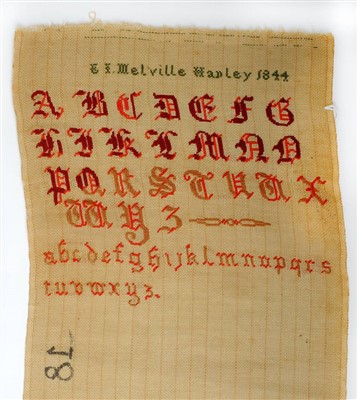 T I. Melville Hanley 1844
A B C D E F G
H I K L M N O
P Q R S T V U X
W Y Z
abcdefghijklmnopqrs
tuvwxyz.
18